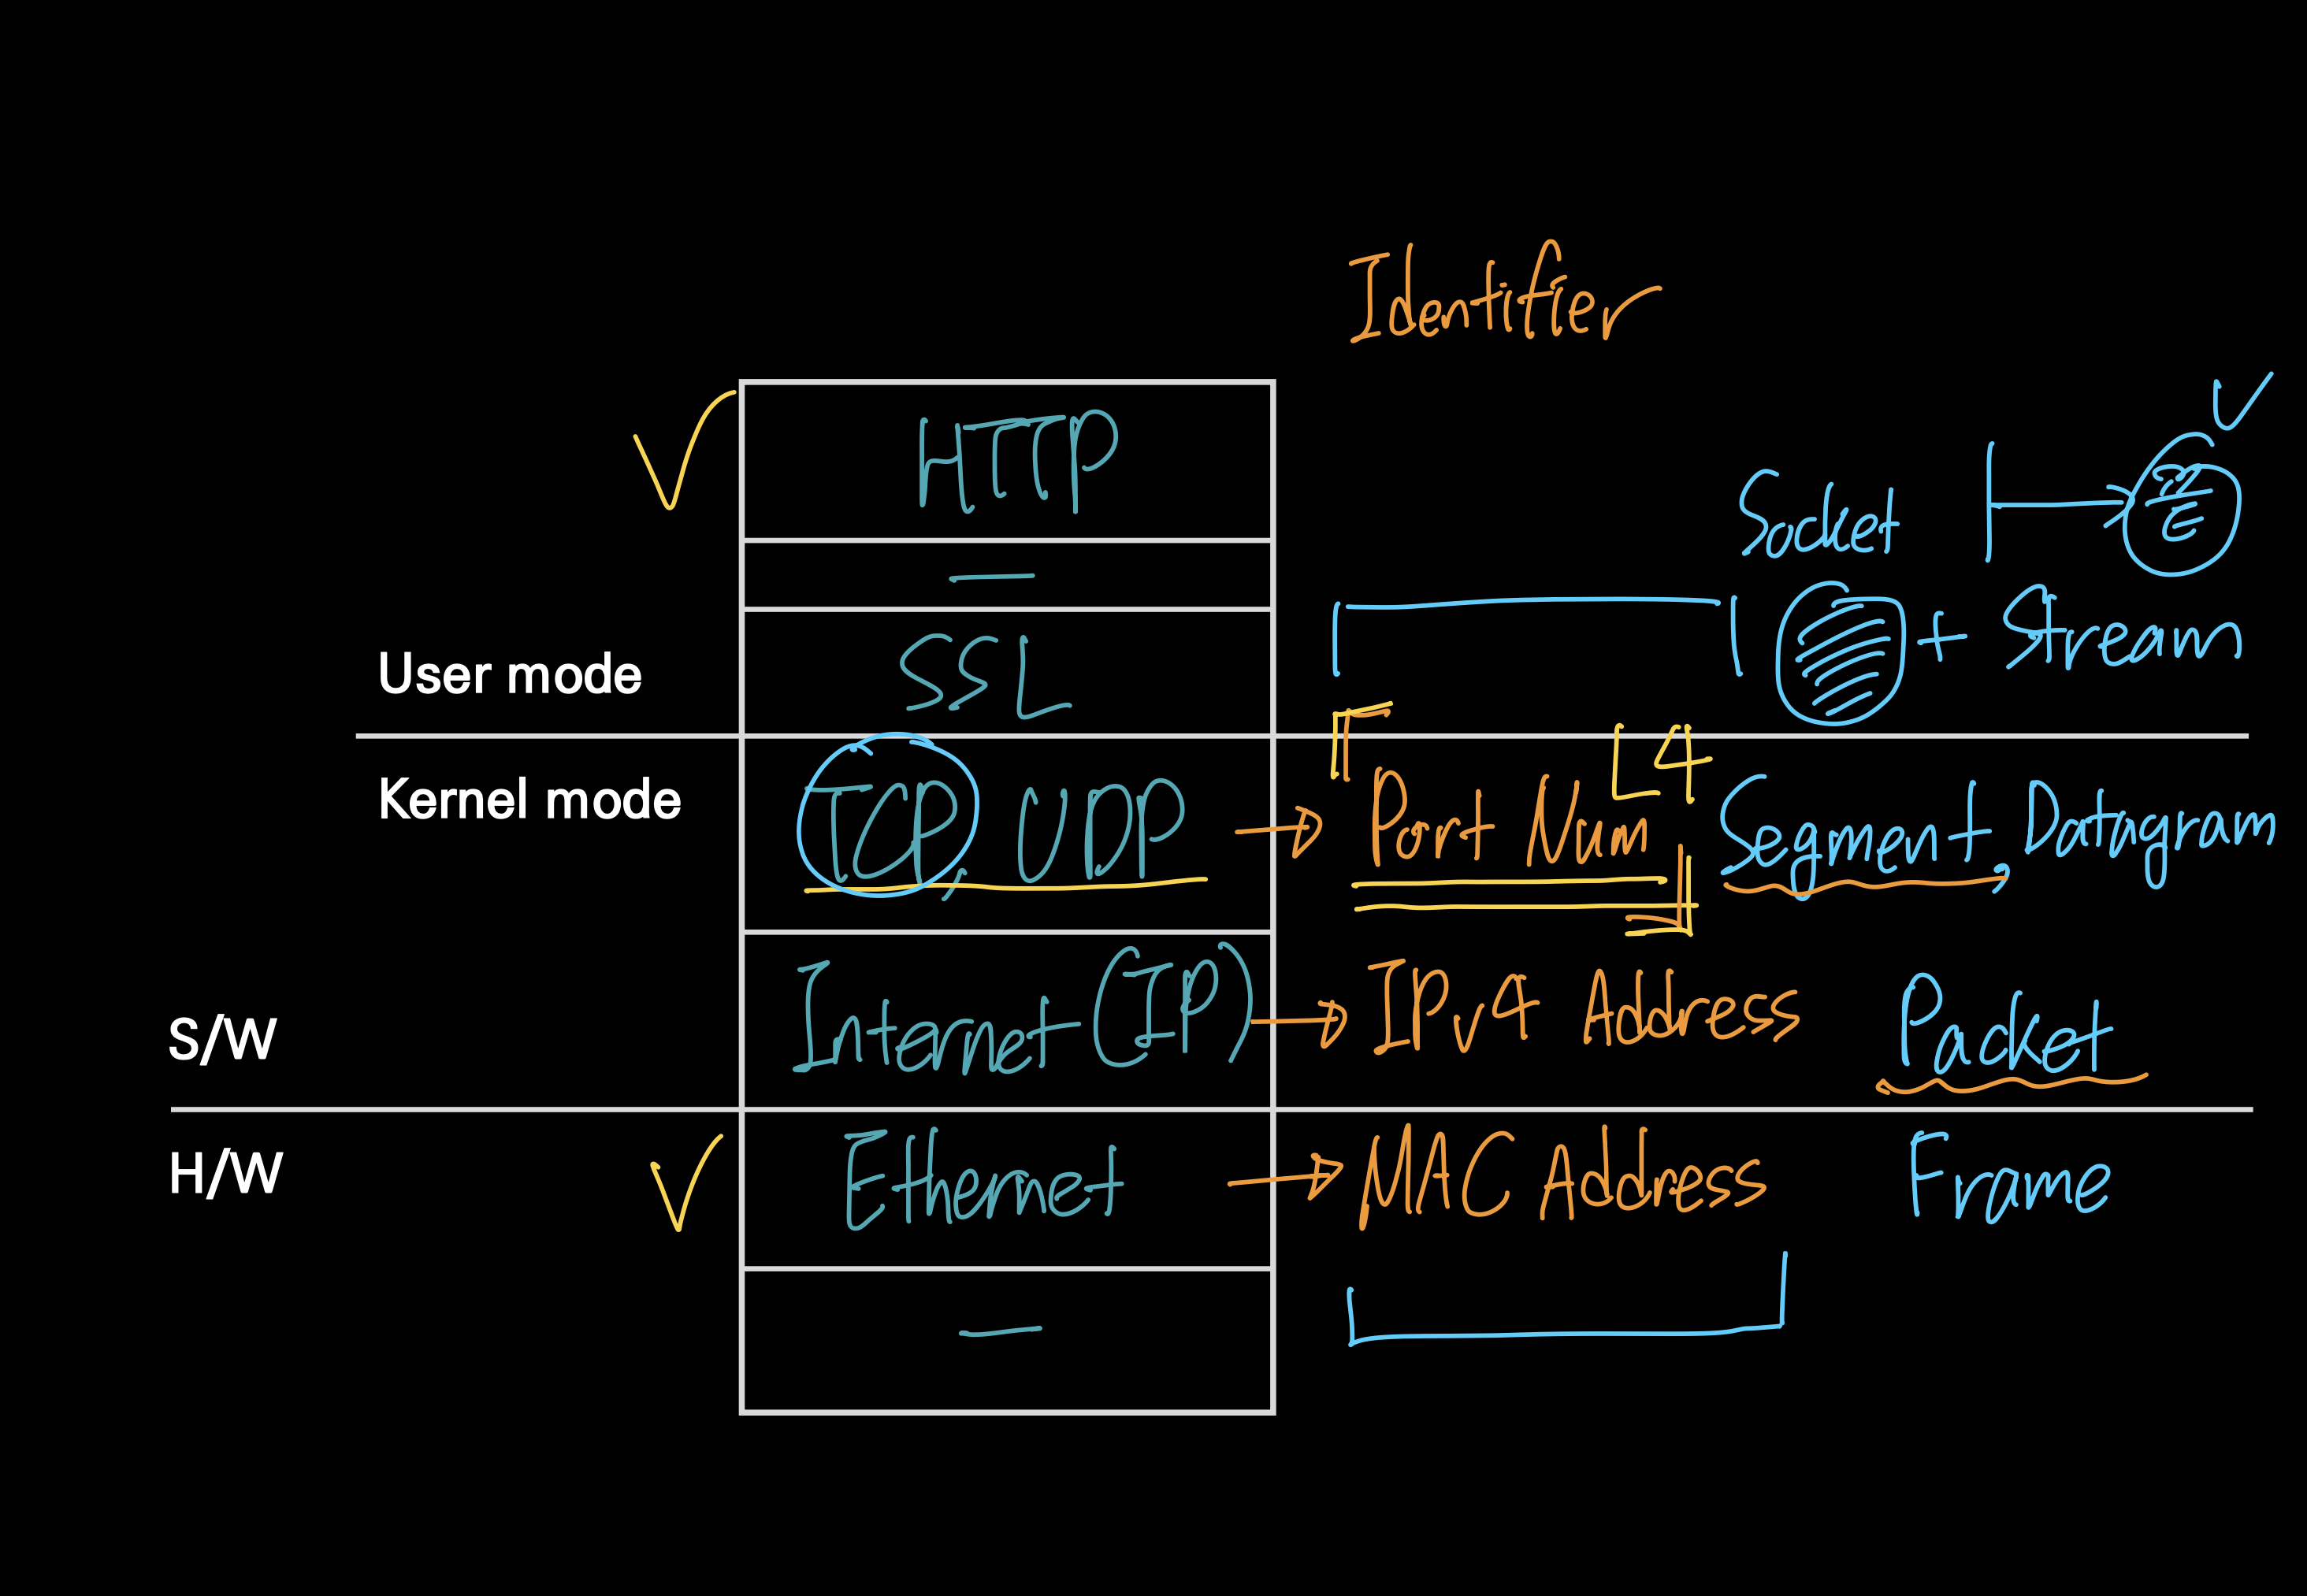 Identifier
HTTP
Socket
User mode
SSL
+ Stream
L4
Kernel mode
TCP, UDP
Port Num
Segment, Datagram
S/W
Internet (IP)
IPv4 Address
Packet
H/W
Ethernet
MAC Address
Frame